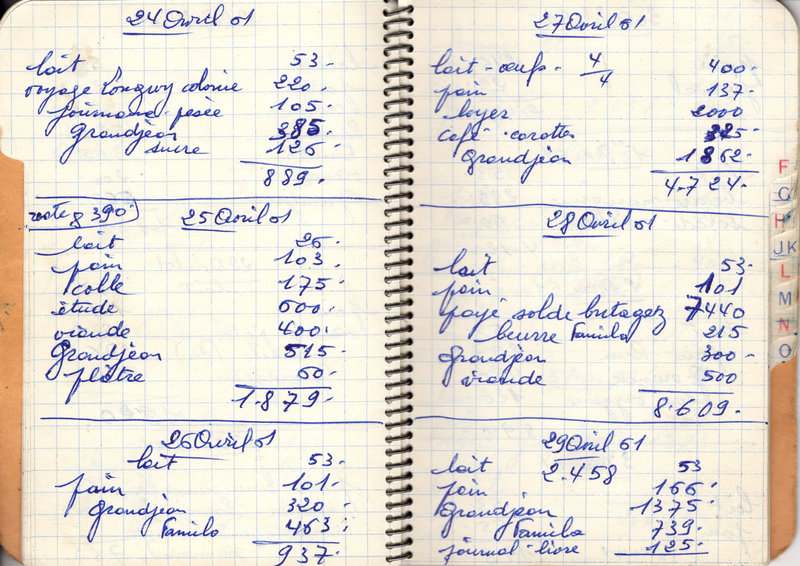 24 Avril 61
lait 53.
voyage Longwy colonie 220.
journaux. pesée 105.
Grandjean 385.
sucre 126.
889.
reste 8390.
25 Avril 61
lait 26.
pain 103.
colle 175.
étude 600.
viande 400.
Grandjean 515.
plâtre 60.
1.879.
26 Avril 61
lait 53.
pain 101.
Grandjean 320.
Familo 463.
937.
27 Avril 61
lait - oeufs. 4/4 400.
pain 137.
loyer 2000
café. carottes 325.
Grandjean 1862.
4.724.
28 Avril 61
lait 53.
pain 101
payé solde butagaz 7440
beurre Familo 215
Grandjean 300
viande 500
8.609.
29 Avril 61
lait 2.458 53
pain 166.
Grandjean 1375.
Familo 739.
journal-livre 125.
F
G
H
JK
L
M
N
O